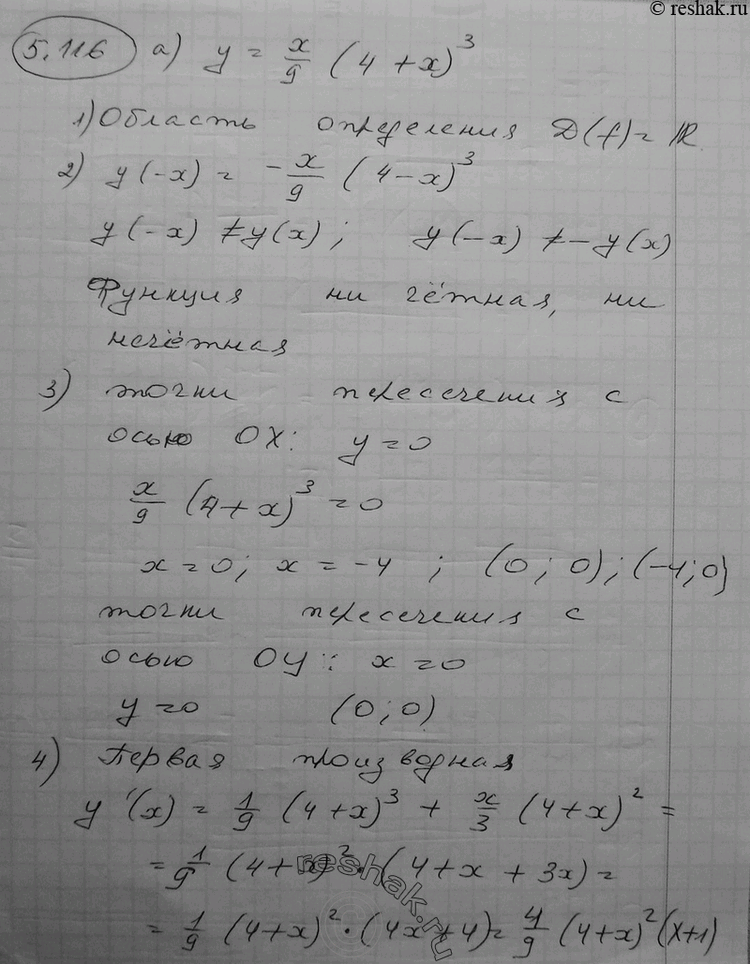 © reshak.ru
5.116 а) y = x/9 (4 + x)^3
1) Область определения D(f) = ℝ.
2) y(-x) = -x/9 (4-x)^3
y(-x) ≠ y(x); y(-x) ≠ -y(x)
Функция ни чётная, ни
нечётная
3) точки пересечения с
осью OX: y=0
x/9 (4+x)^3 = 0
x=0; x=-4; (0;0); (-4;0)
точки пересечения с
осью OY: x=0
y=0 (0;0)
4) Первая производная
y'(x) = 1/9 (4+x)^3 + x/3 (4+x)^2 =
= 1/9 (4+x)^2 · (4+x + 3x) =
= 1/9 (4+x)^2 · (4x+4) = 4/9 (4+x)^2 (x+1)
reshak.ru